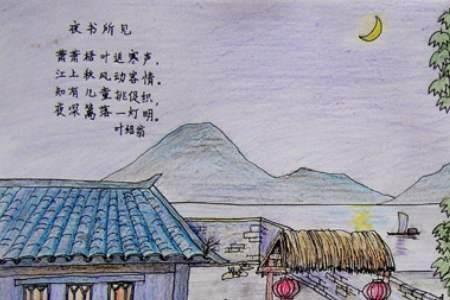 夜书所见
萧萧梧叶送寒声，
江上秋风动客情。
知有儿童挑促积，
夜深篱落一灯明。
叶绍翁